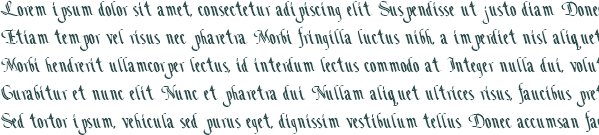 Lorem ipsum dolor sit amet, consectetur adipiscing elit Suspendisse ut justo diam Donec
Etiam tempor vel risus nec pharetra Morbi fringilla luctus nibh, a imperdiet nisl aliquet
Morbi hendrerit ullamcorper lectus, id interdum lectus commodo at Integer nulla dui, volut
Curabitur et nunc elit Nunc et pharetra dui Nullam aliquet ultrices risus, faucibus pret
Sed tortor ipsum, vehicula sed purus eget, dignissim vestibulum tellus Donec accumsan fac